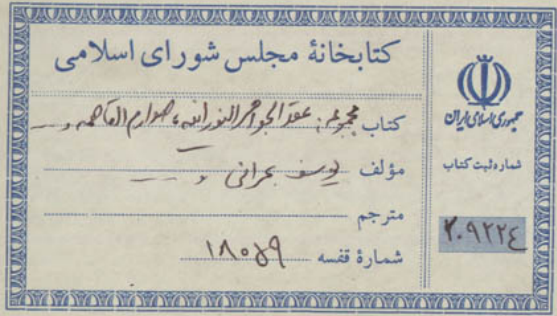 کتابخانهٔ مجلس شورای اسلامی
کتاب مجموعه: عقد الجواهر النورانیه، صوارم القاصمه و
مؤلف یوسف بحرانی و
مترجم
شمارهٔ قفسه ۱۸۰۵۹
جمهوری اسلامی ایران
شماره ثبت کتاب
۲۰۹۲۲۴